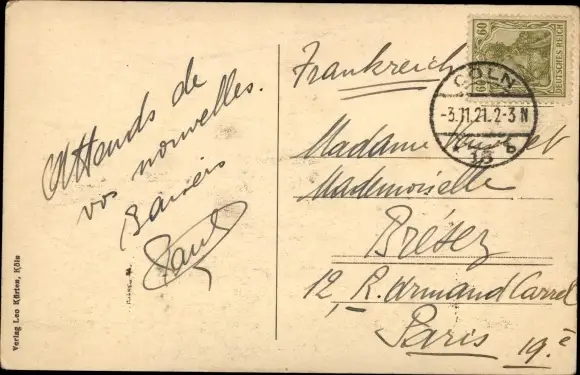 Attends de
vos nouvelles.
Baisers
Paul
Frankreich
Madame et
Mademoiselle
Brésez
12, R. Armand Carrel
Paris 19.e
60
60
DEUTSCHES REICH
CÖLN
-3.11.21.2-3 N
* 15 b
Verlag Leo Körten, Köln